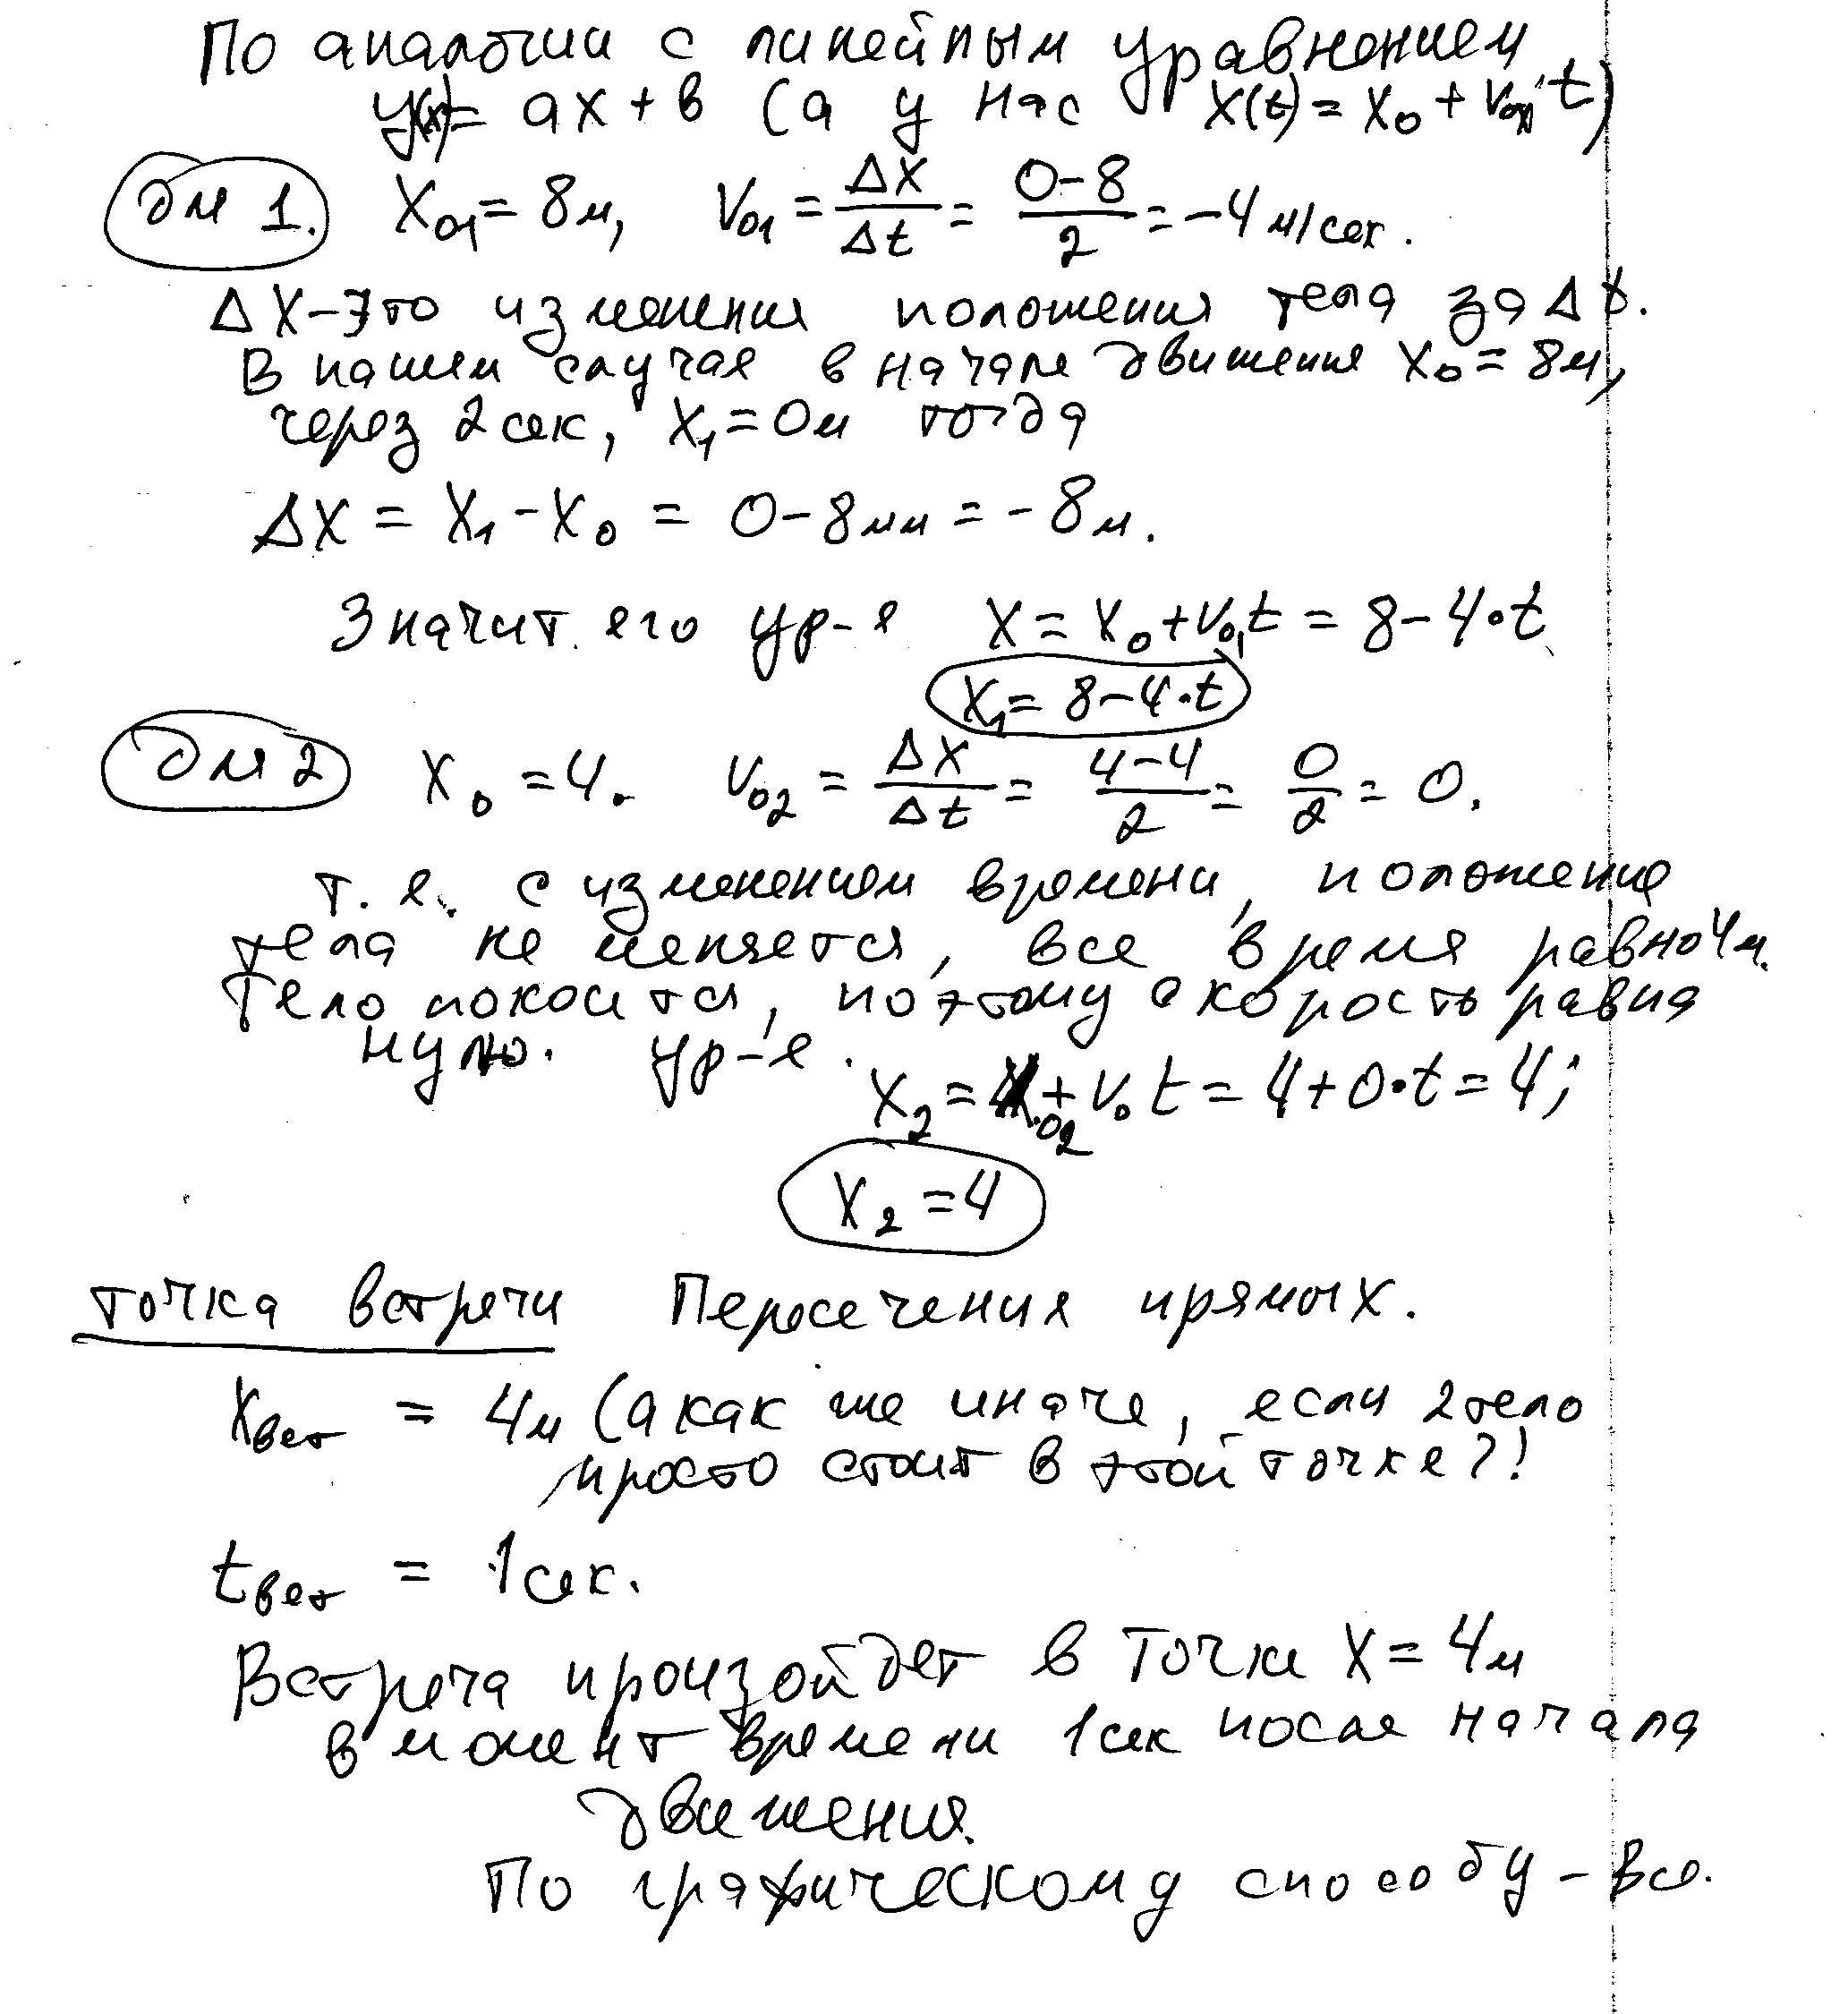 По аналогии с линейным уравнением
y(x)= ax + в (а у нас x(t) = x₀ + v₀ₓ·t)
Дм 1. X₀₁ = 8м, V₀₁ = ΔX/Δt = (0-8)/2 = -4 м/сек.
ΔX - это изменения положения тела за Δt.
В нашем случае в начале движения X₀ = 8м,
через 2 сек, X₁ = 0м тогда
ΔX = X₁ - X₀ = 0 - 8мм = - 8м.
Значит его ур-е X = X₀ + V₀₁t = 8 - 4·t
X₁ = 8 - 4·t
Дм 2 X₀ = 4. V₀₂ = ΔX/Δt = (4-4)/2 = 0/2 = 0.
т. е. с изменением времени, положение
тела не меняется, все время равно 4м.
Тело покоится, поэтому скорость равна
нулю. ур-е.
X₂ = X₀₂ + V₀ t = 4 + 0·t = 4;
X₂ = 4
точка встречи Пересечения прямых.
Xвст = 4м (а как же иначе, если 2 тело
просто стоит в этой точке?!
tвст = 1 сек.
Встреча произойдет в точки X = 4м
в момент времени 1 сек после начала
движения.
По графическому способу - все.